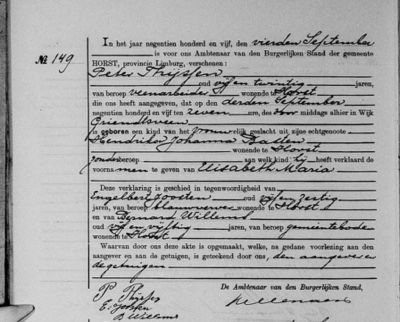 No. 149
In het jaar negentien honderd en vijf, den vierden September
is voor ons Ambtenaar van den Burgerlijken Stand der gemeente
HORST, provincie Limburg, verschenen:
Peter Thijssen
oud vijf en twintig jaren,
van beroep veenarbeider wonende te Horst
die ons heeft aangegeven, dat op den derden September
negentien honderd en vijf ten zeven ure, des voor middags alhier in Wijk
is geboren een kind van het geslacht uit zijne echtgenoote
Hendrika Johanna Baden
wonende te Horst
zonder beroep aan welk kind hij heeft verklaard de
voornamen te geven van Elisabeth Maria
Deze verklaring is geschied in tegenwoordigheid van
Engelbert Joosten oud vijf en zestig
jaren, van beroep wonende te Horst
en van Bernard Willems
oud vijf en vijftig jaren, van beroep gemeentebode
wonende te Horst
Waarvan door ons deze akte is opgemaakt, welke, na gedane voorlezing aan den
aangever en aan de getuigen, is geteekend door ons, den aangever en
de getuigen.
De Ambtenaar van den Burgerlijken Stand,
P. Thijssen
E. Joosten
B. Willems